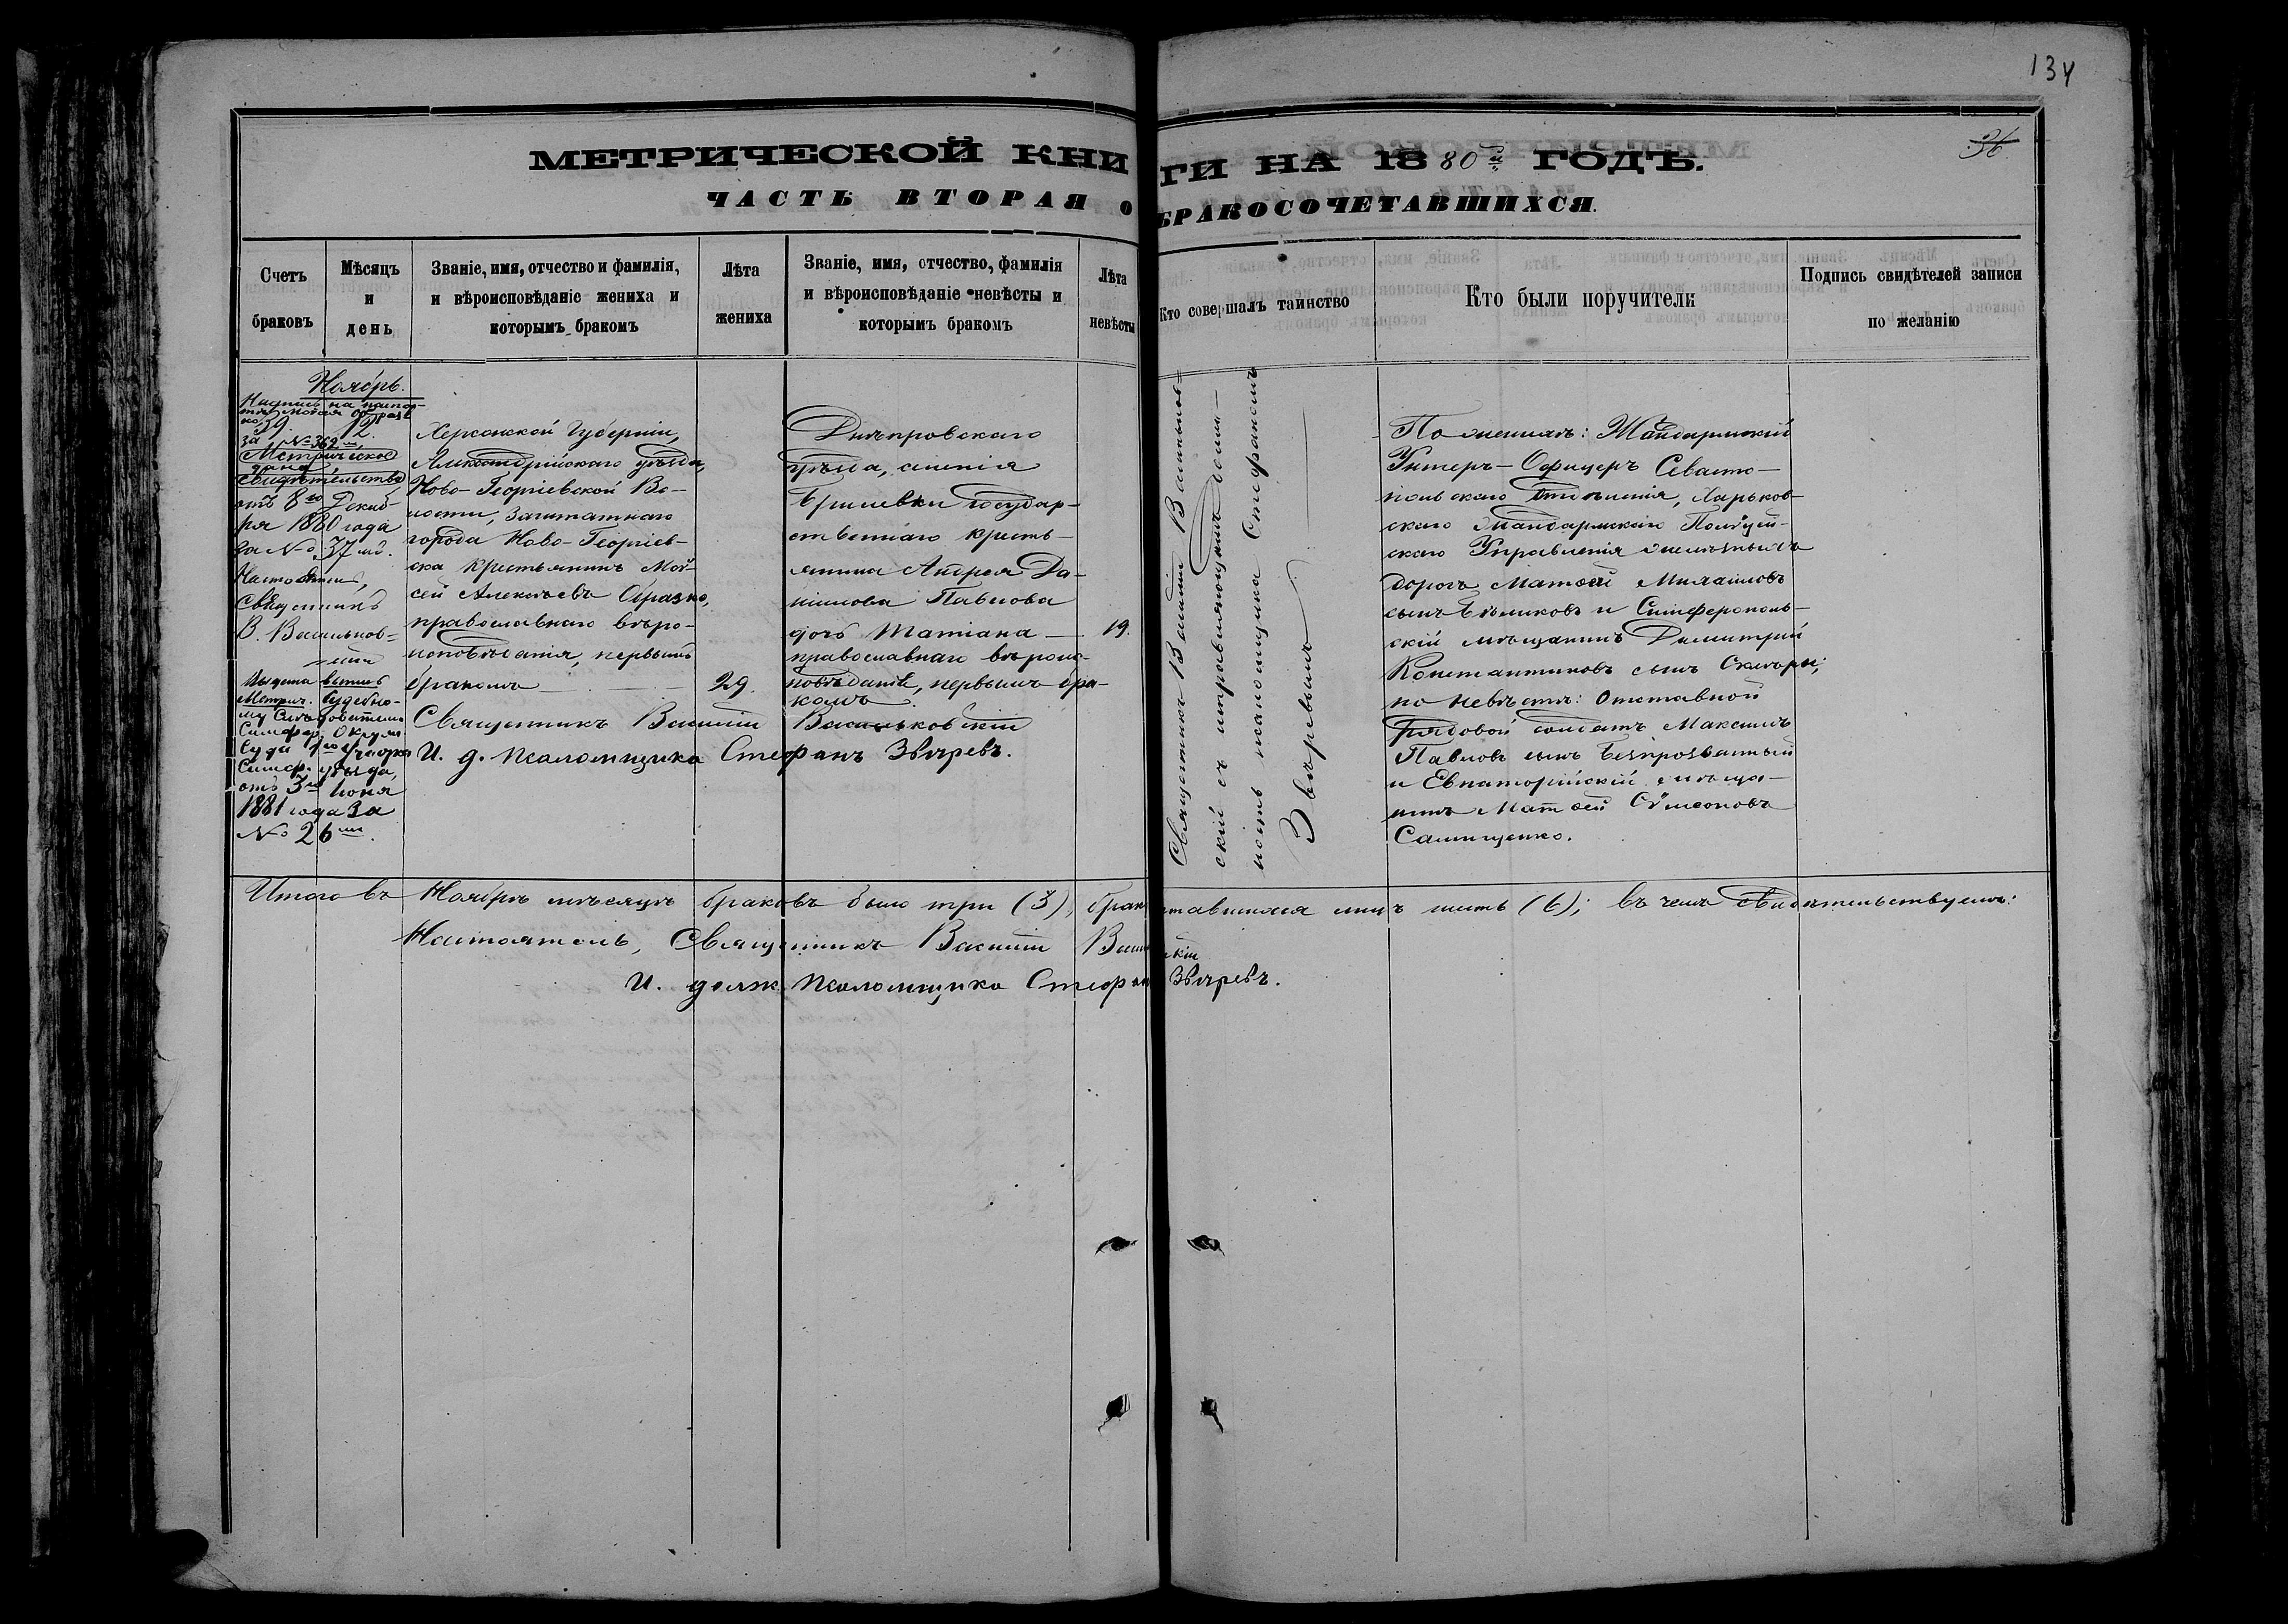 134
36
МЕТРИЧЕСКОЙ КНИГИ НА 1880й ГОДЪ.
ЧАСТЬ ВТОРАЯ О БРАКОСОЧЕТАВШИХСЯ.
Счетъ браковъ
Мѣсяцъ и день
Званіе, имя, отчество и фамилія,
и вѣроисповѣданіе жениха и
которымъ бракомъ
Лѣта жениха
Званіе, имя, отчество, фамилія
и вѣроисповѣданіе невѣсты и
которымъ бракомъ
Лѣта невѣсты
Кто совершалъ таинство
Кто были поручители
Подпись свидѣтелей записи
по желанію
Ноябрь.
39. 12.
за № 362
Метрическое
дано
свидѣтельство
отъ 8го Декаб-
ря 1880 года
за № 37мъ.
Настоятель,
Священникъ
В. Васильков-
скій
Выдана выпись
Метрич. Судебно-
му Слѣдователю
Симфер. Окружн.
Суда 1го участка
Симф. уѣзда,
отъ 3го Іюня
1881 года за
№ 26мъ.
Херсонской Губерніи,
Александрійскаго уѣзда,
Ново-Георгіевской Во-
лости, заштатнаго
города Ново-Георгіев-
ска крестьянинъ Мой-
сей Алексѣевъ Образко,
православнаго вѣро-
исповѣданія, первымъ
бракомъ
29.
Днѣпровскаго
уѣзда, селенія
Брилевки государ-
ственнаго кресть-
янина Андрея Да-
нилова Павлова
дочь Татіана
православнаго вѣроис-
повѣданія, первымъ бра-
комъ.
19.
Священникъ Василій Васильковскій
И. д. псаломщика Стефанъ Звѣревъ.
Священникъ Василій Васильков-
скій съ исправляющимъ долж-
ность псаломщика Стефаномъ
Звѣревымъ
По женихѣ: Жандармскій
Унтеръ-Офицеръ Севасто-
польскаго отдѣленія, Харьков-
скаго Жандармскаго Полицей-
скаго Управленія желѣзныхъ
дорогъ Матѳей Михаиловъ
сынъ Бѣликовъ и Симферополь-
скій мѣщанинъ Димитрій
Константиновъ сынъ Скляры;
по невѣстѣ: Отставной
рядовой солдатъ Максимъ
Павловъ сынъ Безпрозванный
и Евпаторійскій мѣща-
нинъ Матѳей Сѵмеоновъ
Самищенко.
Итого въ Ноябрѣ мѣсяцѣ браковъ было три (3), бракосочетавшихся лицъ шесть (6); въ чемъ свидѣтельствуемъ:
Настоятель, Священникъ Василій Васильковскій
И. долж. псаломщика Стефанъ Звѣревъ.